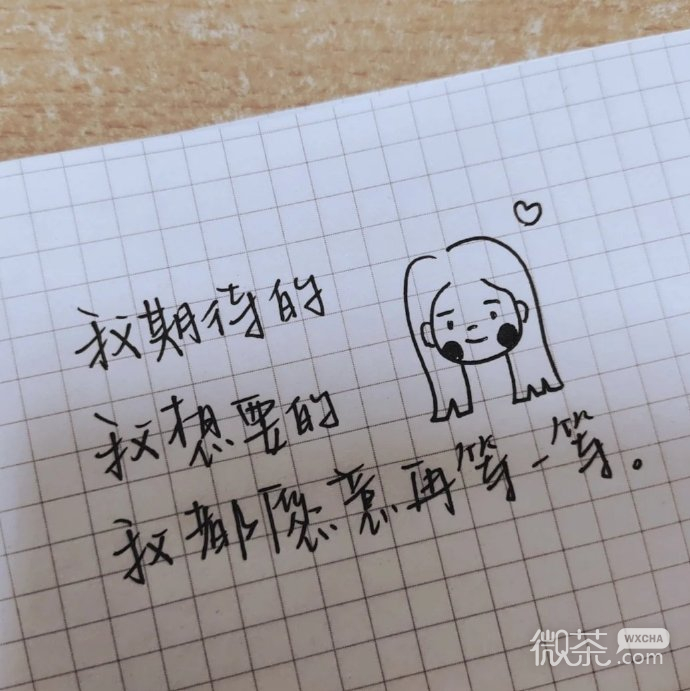 我期待的
我想要的
我都愿意再等一等。
微茶
WXCHA
.com